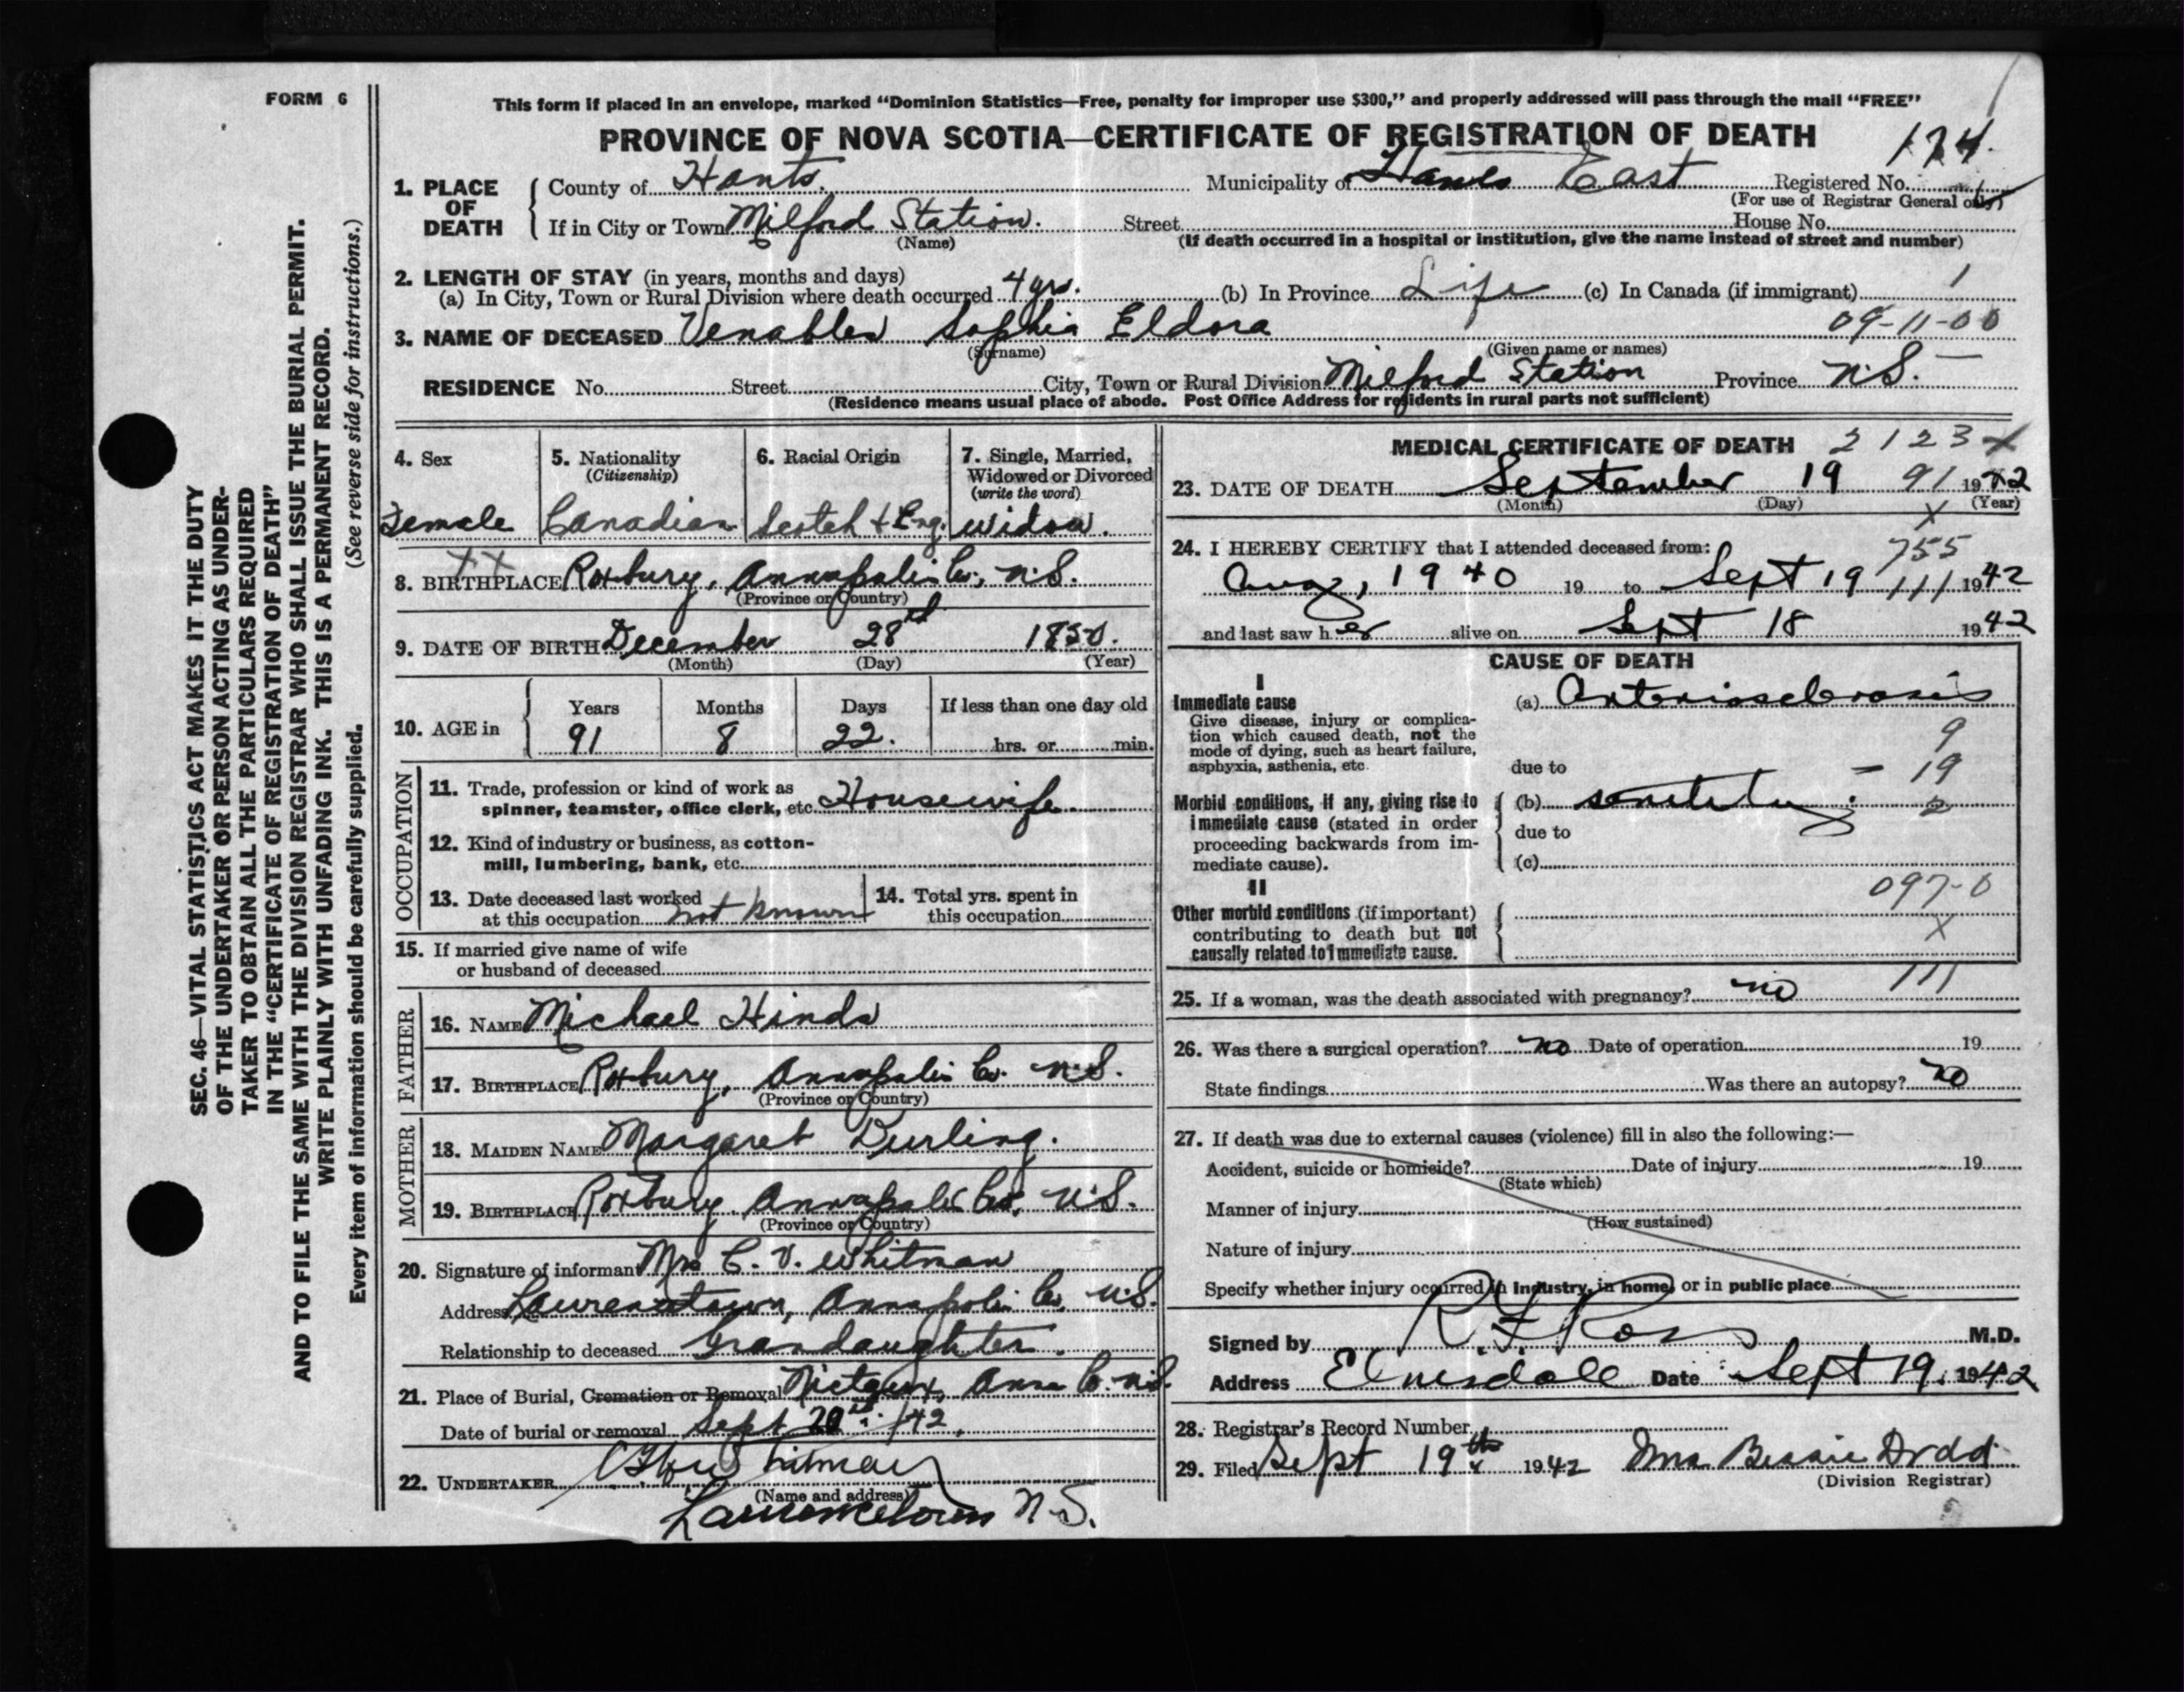 FORM 6
This form if placed in an envelope, marked “Dominion Statistics—Free, penalty for improper use $300,” and properly addressed will pass through the mail “FREE”
PROVINCE OF NOVA SCOTIA—CERTIFICATE OF REGISTRATION OF DEATH
174.
1. PLACE OF DEATH County of Hants. Municipality of Hants East Registered No.
(For use of Registrar General only)
If in City or Town Milford Station. Street House No.
(Name) (If death occurred in a hospital or institution, give the name instead of street and number)
2. LENGTH OF STAY (in years, months and days)
(a) In City, Town or Rural Division where death occurred 4 yrs. (b) In Province Life (c) In Canada (if immigrant) 1
3. NAME OF DECEASED Venables Sophia Eldora 09-11-00
(Surname) (Given name or names)
RESIDENCE No. Street City, Town or Rural Division Milford Station Province N.S.
(Residence means usual place of abode. Post Office Address for residents in rural parts not sufficient)
4. Sex 5. Nationality (Citizenship) 6. Racial Origin 7. Single, Married, Widowed or Divorced (write the word)
Female Canadian Scotch + Eng. Widow.
8. BIRTHPLACE Roxbury, Annapolis Co., N.S.
(Province or Country)
9. DATE OF BIRTH December 28 1850.
(Month) (Day) (Year)
10. AGE in Years Months Days If less than one day old
91 8 22. hrs. or min.
OCCUPATION
11. Trade, profession or kind of work as
spinner, teamster, office clerk, etc. Housewife.
12. Kind of industry or business, as cotton-
mill, lumbering, bank, etc.
13. Date deceased last worked
at this occupation not known
14. Total yrs. spent in
this occupation
15. If married give name of wife
or husband of deceased
FATHER
16. NAME Michael Hinds
17. BIRTHPLACE Roxbury, Annapolis Co. N.S.
(Province or Country)
MOTHER
18. MAIDEN NAME Margaret Durling.
19. BIRTHPLACE Roxbury Annapolis Co. N.S.
(Province or Country)
20. Signature of informant Mrs C. V. Whitman
Address Lawrencetown, Annapolis Co. N.S.
Relationship to deceased Grandaughter.
21. Place of Burial, Cremation or Removal Nictaux, Anna Co. N.S.
Date of burial or removal Sept 20 /42.
22. UNDERTAKER Whitman
(Name and address)
Lawrencetown N.S.
MEDICAL CERTIFICATE OF DEATH 2123 X
23. DATE OF DEATH September 19 91 1942
(Month) (Day) (Year)
X
24. I HEREBY CERTIFY that I attended deceased from: 755
Aug, 1940 19 to Sept 19 111 1942
and last saw her alive on Sept 18 1942
CAUSE OF DEATH
I
Immediate cause
Give disease, injury or complica-
tion which caused death, not the
mode of dying, such as heart failure,
asphyxia, asthenia, etc.
(a) Arteriosclerosis
9
due to - 19
Morbid conditions, if any, giving rise to
immediate cause (stated in order
proceeding backwards from im-
mediate cause).
(b) senility. 2
due to
(c)
II 097-0
Other morbid conditions (if important)
contributing to death but not
causally related to immediate cause.
X
25. If a woman, was the death associated with pregnancy? no 111
26. Was there a surgical operation? no Date of operation 19
State findings Was there an autopsy? no
27. If death was due to external causes (violence) fill in also the following:—
Accident, suicide or homicide? Date of injury 19
(State which)
Manner of injury
(How sustained)
Nature of injury
Specify whether injury occurred in Industry, in home, or in public place
Signed by R. F. Ross M.D.
Address Elmsdale Date Sept 19, 1942
28. Registrar’s Record Number
29. Filed Sept 19th 1942 Mrs Bessie Dodd
(Division Registrar)
SEC. 46—VITAL STATISTICS ACT MAKES IT THE DUTY
OF THE UNDERTAKER OR PERSON ACTING AS UNDER-
TAKER TO OBTAIN ALL THE PARTICULARS REQUIRED
IN THE “CERTIFICATE OF REGISTRATION OF DEATH”
AND TO FILE THE SAME WITH THE DIVISION REGISTRAR WHO SHALL ISSUE THE BURIAL PERMIT.
WRITE PLAINLY WITH UNFADING INK. THIS IS A PERMANENT RECORD.
Every item of information should be carefully supplied. (See reverse side for instructions.)